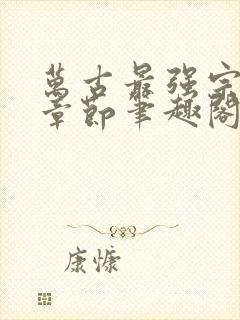 萬古最强宗
章節筆趣閣
康慷